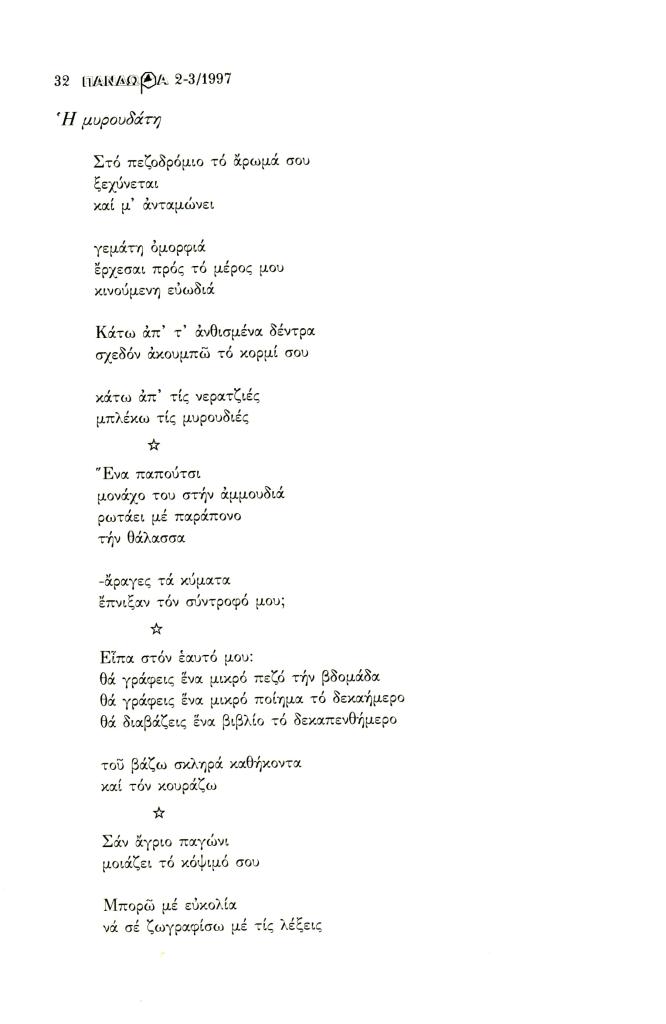 32 ΠΑΝΔΩΡΑ 2-3/1997
Ἡ μυρουδάτη
Στό πεζοδρόμιο τό ἄρωμά σου
ξεχύνεται
καί μ' ἀνταμώνει
γεμάτη ὀμορφιά
ἔρχεσαι πρός τό μέρος μου
κινούμενη εὐωδιά
Κάτω ἀπ' τ' ἀνθισμένα δέντρα
σχεδόν ἀκουμπῶ τό κορμί σου
κάτω ἀπ' τίς νερατζιές
μπλέκω τίς μυρουδιές
☆
Ἕνα παπούτσι
μονάχο του στήν ἀμμουδιά
ρωτάει μέ παράπονο
τήν θάλασσα
-ἄραγες τά κύματα
ἔπνιξαν τόν σύντροφό μου;
☆
Εἶπα στόν ἑαυτό μου:
θά γράφεις ἕνα μικρό πεζό τήν βδομάδα
θά γράφεις ἕνα μικρό ποίημα τό δεκαήμερο
θά διαβάζεις ἕνα βιβλίο τό δεκαπενθήμερο
τοῦ βάζω σκληρά καθήκοντα
καί τόν κουράζω
☆
Σάν ἄγριο παγώνι
μοιάζει τό κόψιμό σου
Μπορῶ μέ εὐκολία
νά σέ ζωγραφίσω μέ τίς λέξεις